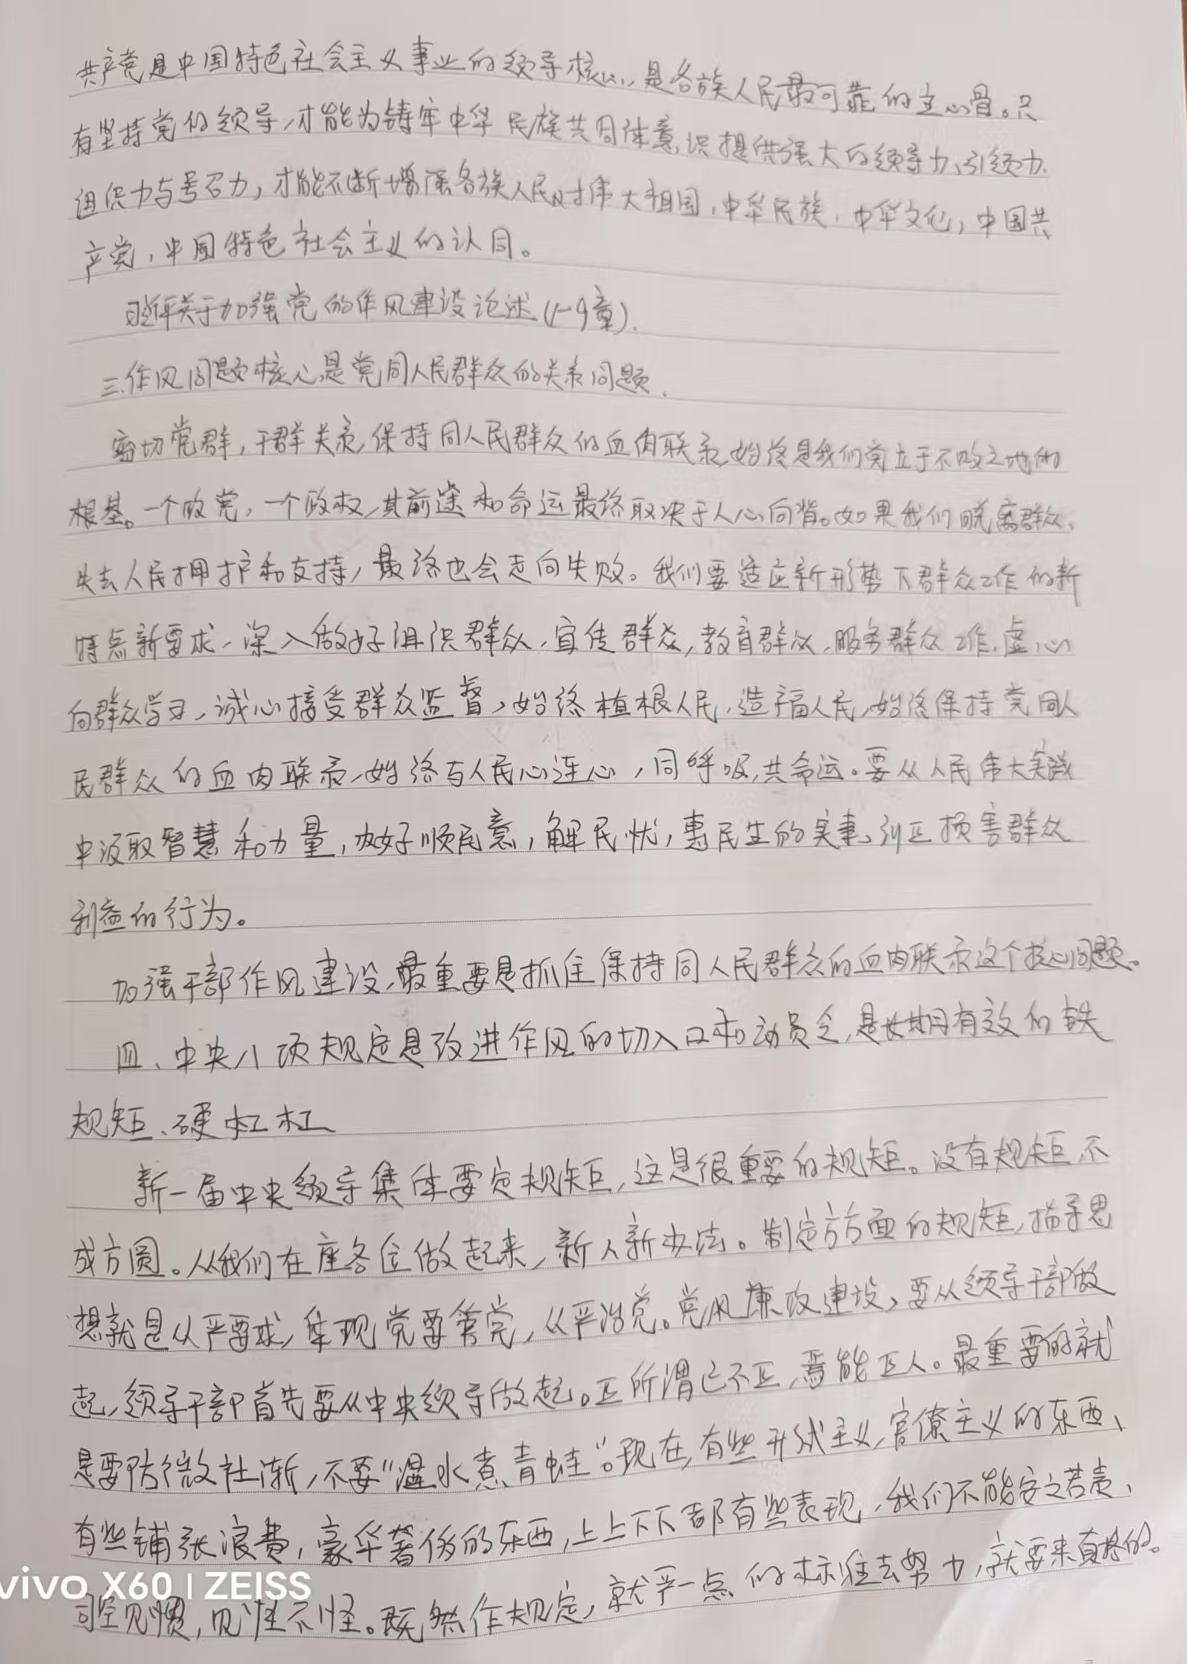 共产党是中国特色社会主义事业的领导核心,是各族人民最可靠的主心骨。只
有坚持党的领导,才能为铸牢中华民族共同体意识提供强大的领导力、引领力、
组织力与号召力,才能不断增强各族人民对伟大祖国、中华民族、中华文化,中国共
产党、中国特色社会主义的认同。
关于加强党的作风建设论述(1-9章).
三.作风问题核心是党同人民群众的关系问题.
密切党群,干群关系,保持同人民群众的血肉联系,始终是我们党立于不败之地的
根基。一个政党,一个政权,其前途和命运最终取决于人心向背。如果我们脱离群众、
失去人民拥护和支持,最终也会走向失败。我们要适应新形势下群众工作的新
特点新要求,深入做好组织群众、宣传群众,教育群众、服务群众工作,虚心
向群众学习,诚心接受群众监督,始终植根人民、造福人民,始终保持党同人
民群众的血肉联系,始终与人民心连心,同呼吸,共命运。要从人民伟大实践
中汲取智慧和力量,办好顺民意,解民忧,惠民生的实事,纠正损害群众
利益的行为。
加强干部作风建设,最重要是抓住保持同人民群众的血肉联系这个核心问题。
四、中央八项规定是改进作风的切入口和动员令,是长期有效的铁
规矩、硬杠杠
新一届中央领导集体要定规矩,这是很重要的规矩。没有规矩,不
成方圆。从我们在座各位做起来,新人新办法。制定方方面的规矩,指导思
想就是从严要求,体现党要管党,从严治党。党风廉政建设,要从领导干部做
起,领导干部首先要从中央领导做起。正所谓己不正,焉能正人。最重要的就
是要防微杜渐,不要“温水煮青蛙”。现在,有些形式主义,官僚主义的东西、
有些铺张浪费,豪华奢侈的东西,上上下下都有些表现,我们不能安之若素、
司空见惯,见怪不怪。既然作规定,就严一点的标准去努力,就要来真格的。
vivo X60 | ZEISS